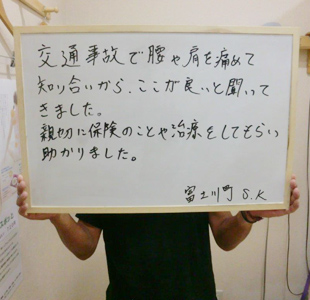 交通事故で腰や肩を痛めて
知り合いから、ここが良いと聞いて
きました。
親切に保険のことや治療をしてもらい
助かりました。
富士川町 S.K